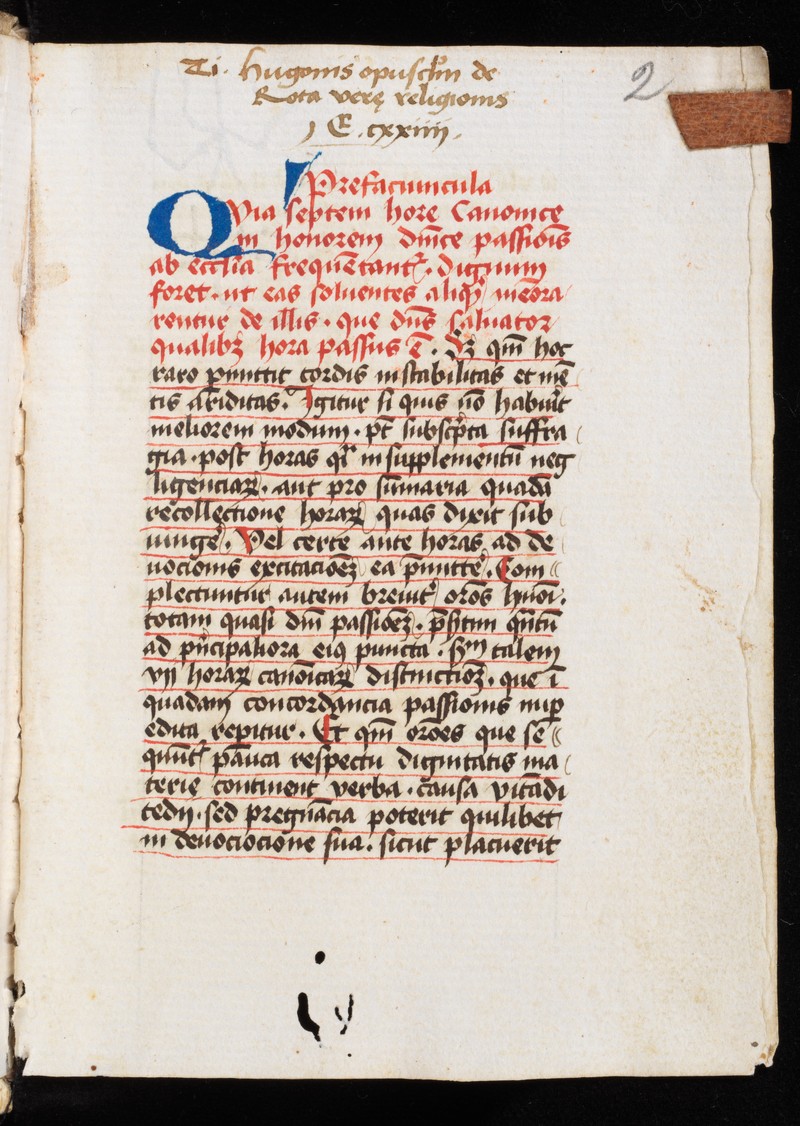 Ti. Hugonis opuscl̄m de
Rota verę religionis
j E. cxxiiii.
2
Prefaciuncula
Quia septem hore Canonice
in honorem dn̄ice passiōis
ab eccl̄ia frequētant᷑. dignum
foret. ut eas soluentes aliqꝫ meōra
rentur de illis. que dn̄s saluator
qualibꝫ hora passus ē. Sꝫ qm̄ hoc
raro ꝑmittit cordis instabilitas et mē
tis ariditas. Igitur si quis nō habuīt
meliorem modum. pt̄ subscp̄ta suffra
gia. post horas qͥ in supplementū neg
ligenciaꝝ. aut pro sum̄aria quadā
recollectione horaꝝ quas dixit sub
iunge᷑. Vel certe ante horas ad de
uocionis excitacioēꝫ ea p̄mitte᷑. Com
plectuntur autem breuit᷑ orōs hm̄oi.
totam quasi dn̄i passioēꝫ. p̄sītim qn̄tū
ad pn̄cipaliora eiꝰ puncta. Sm̄ talem
vij horaꝝ canōicaꝝ distinctiōꝫ. que ī
quadam concordancia passionis nuꝑ
edita reꝑitur. Et qm̄ orōes que se
qn̄nt᷑ pauca respectu dignitatis ma
terie continent verba. causa vitādi
tedij. sed pregnācia poterit quilibet
in deuociocione sua. sicut placuerit